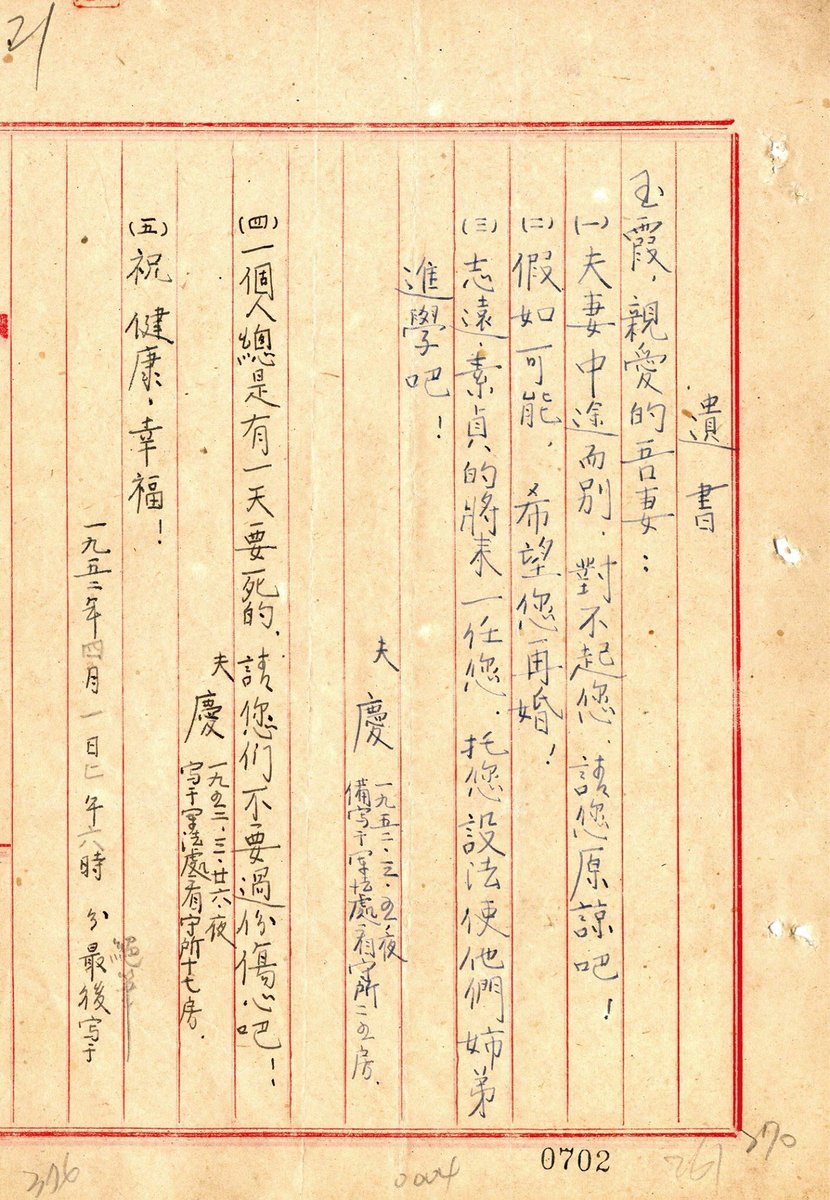 遺書
玉霞，親愛的吾妻：
(一)夫妻中途而別，對不起您，請您原諒吧！
(二)假如可能，希望您再婚！
(三)志遠、素貞的將來一任您，托您設法使他們姉弟
進學吧！
夫 慶
一九五二、三、五夜
備寫于軍法處看守所二五房．
(四)一個人總是有一天要死的，請您们不要過份傷心吧！
夫 慶
一九五二、三、廿六、夜
寫于軍法處看守所十七房．
(五)祝 健康，幸福！
一九五二年四月一日上午六時 分最後写于
絕筆
21
0702
370
261
0004
376